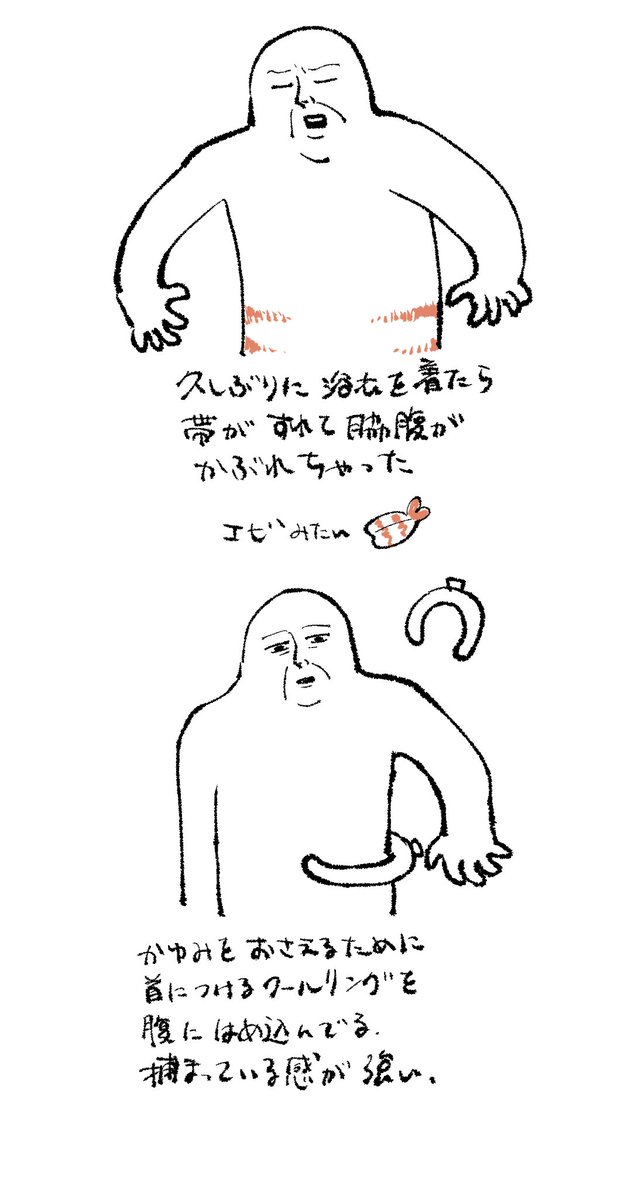 久しぶりに浴衣を着たら
帯がすれて脇腹が
かぶれちゃった
エビみたい
かゆみをおさえるために
首につけるクールリングを
腹にはめ込んでる.
捕まっている感が強い。